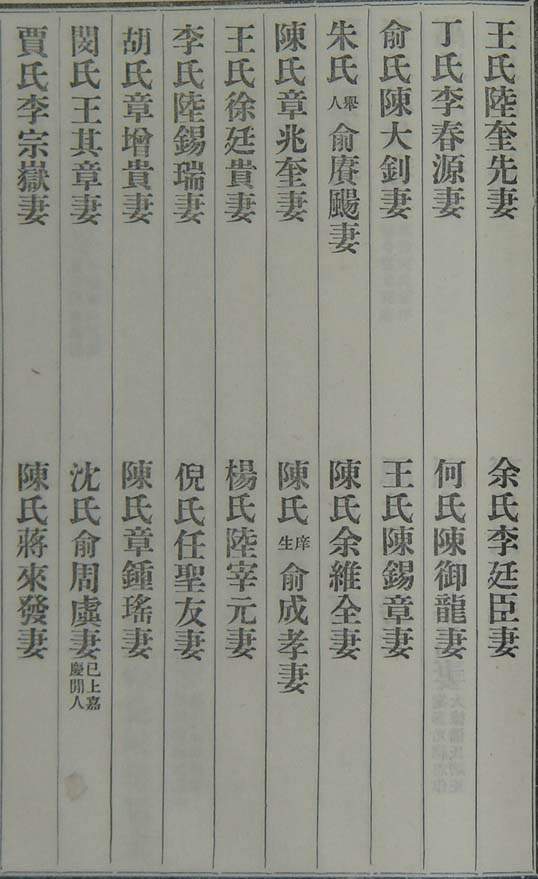 王氏陸奎先妻　余氏李廷臣妻
丁氏李春源妻　何氏陳御龍妻
俞氏陳大釗妻　王氏陳錫章妻
朱氏舉人俞賡颺妻　陳氏余維全妻
陳氏章兆奎妻　陳氏庠生俞成孝妻
王氏徐廷貴妻　楊氏陸宰元妻
李氏陸錫瑞妻　倪氏任聖友妻
胡氏章增貴妻　陳氏章鍾瑤妻
閔氏王其章妻　沈氏俞周虞妻已上嘉慶閒人
賈氏李宗嶽妻　陳氏蔣來發妻